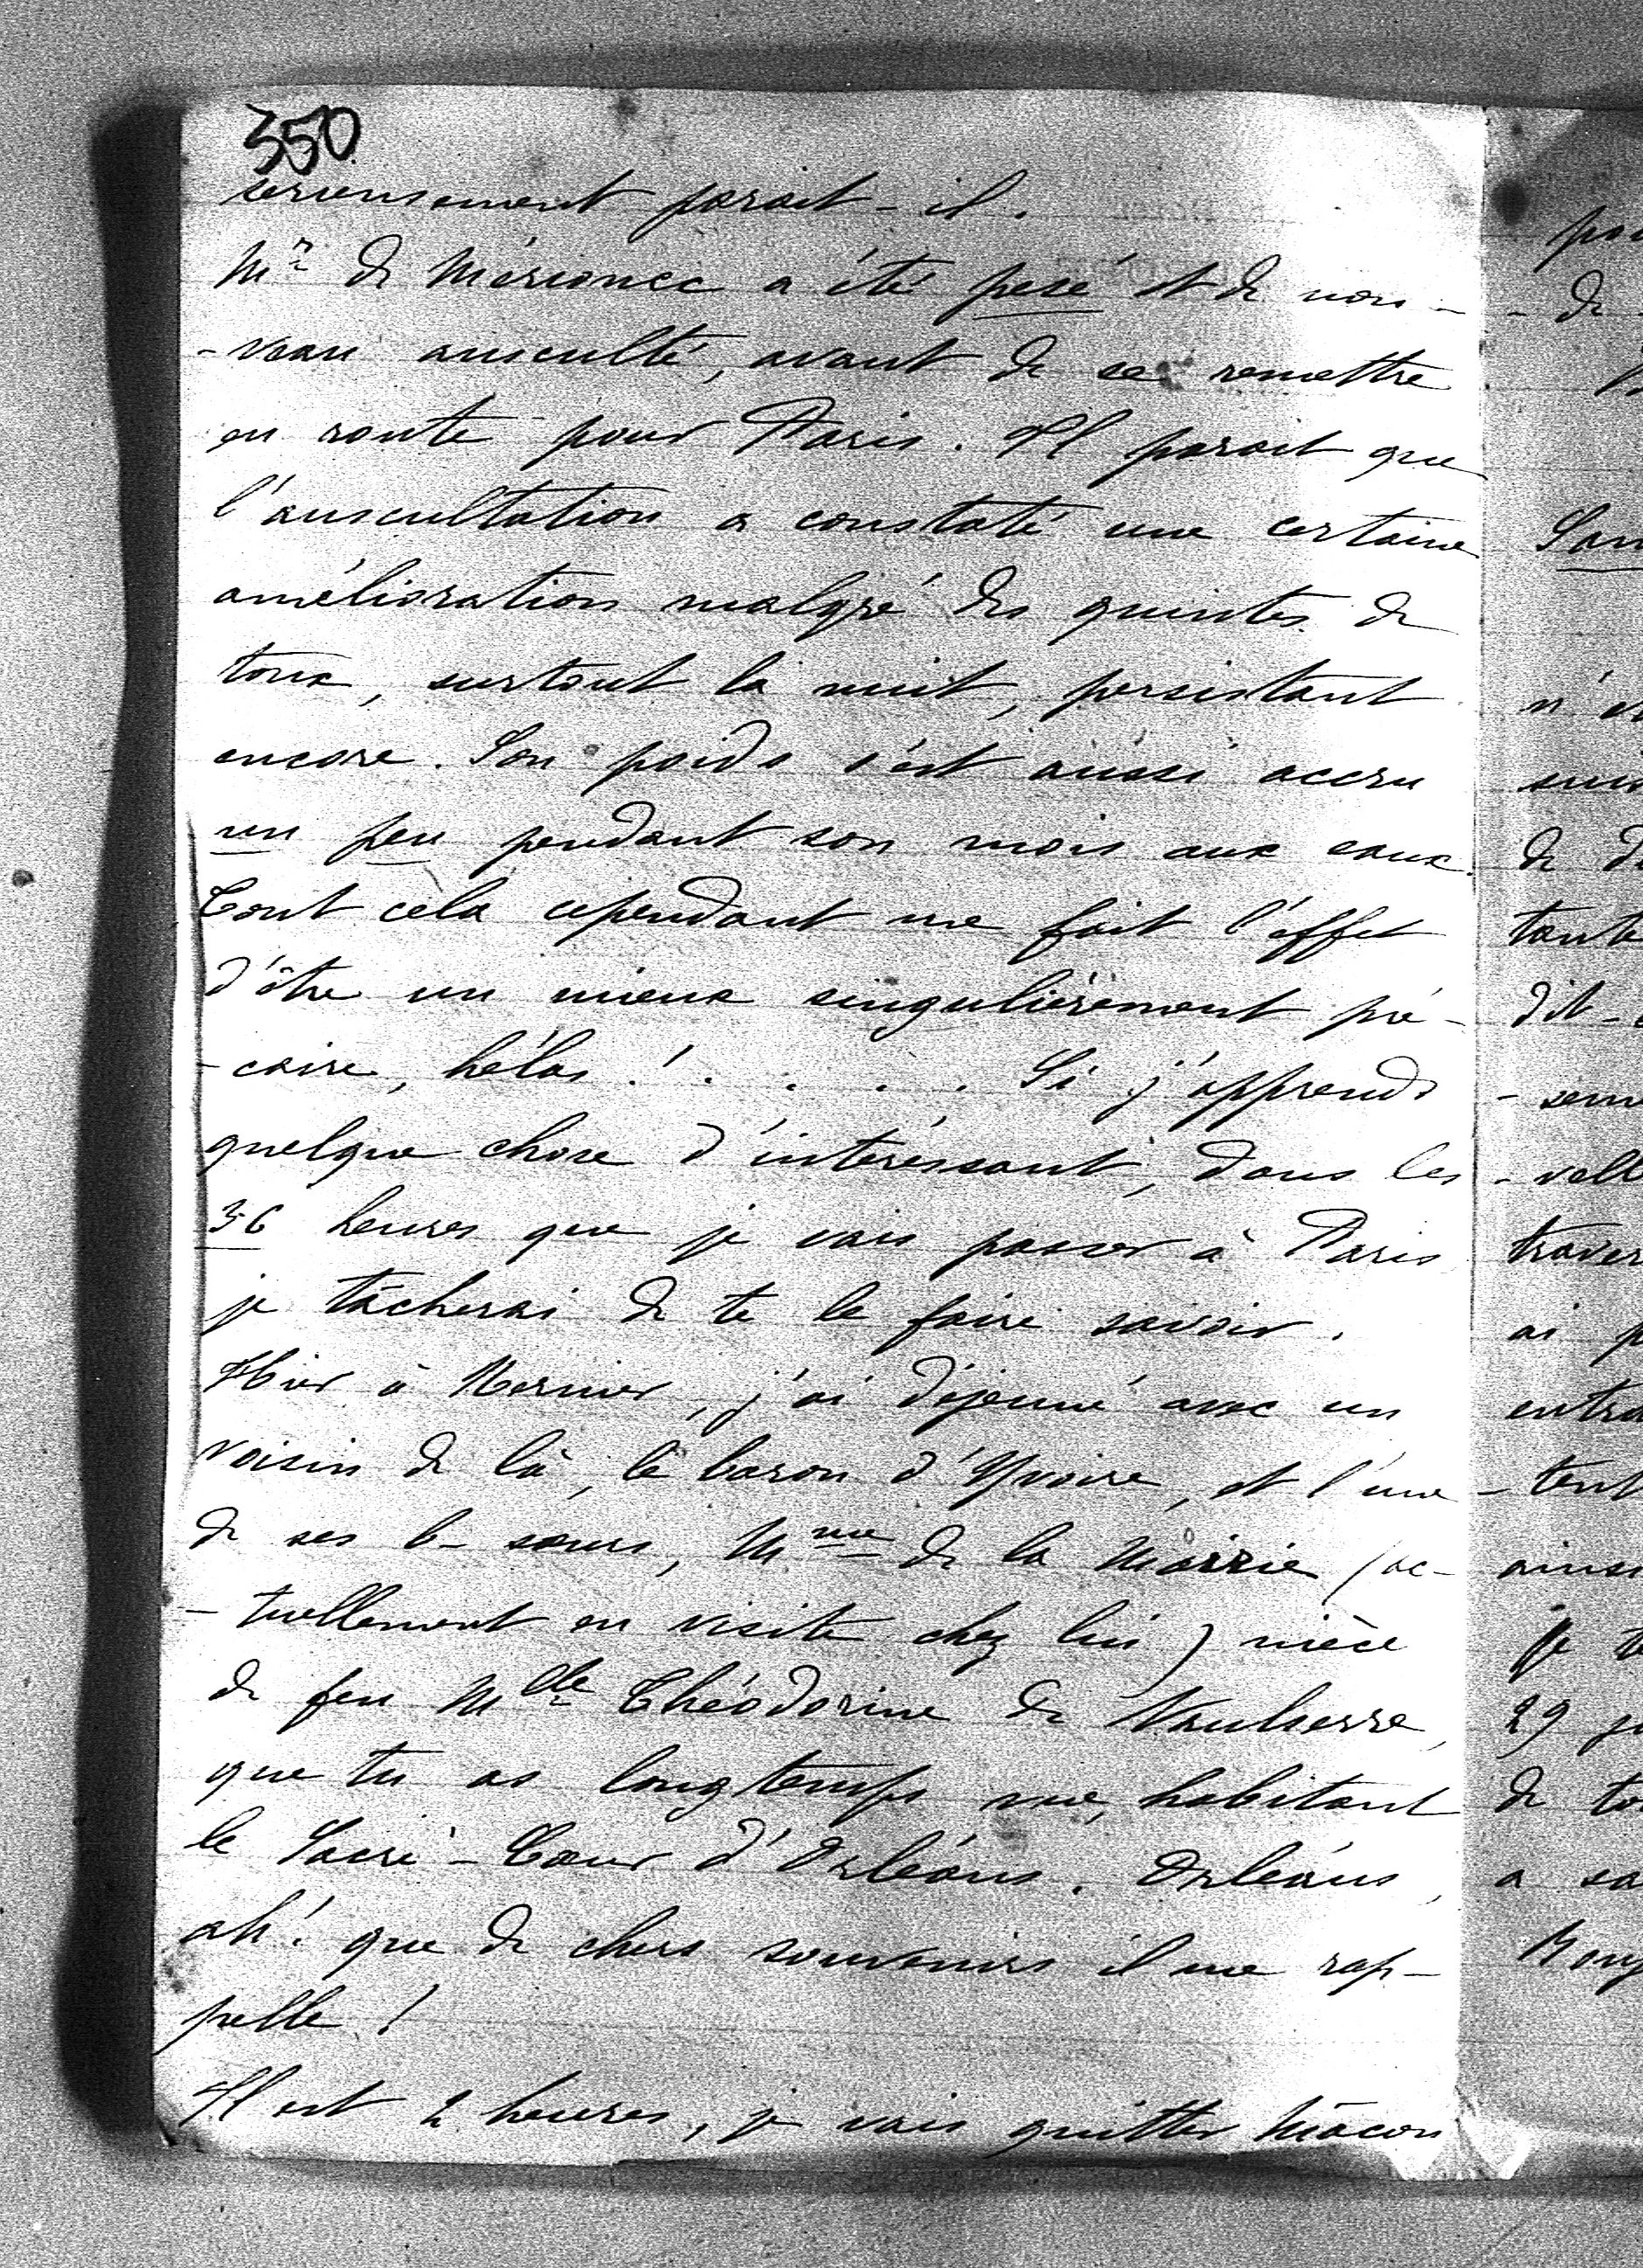 350
serieusement parait-il.
Mr de Mérionec a été pesé et de nou-
-veau ausculté, avant de se remettre
en route pour Paris. Il parait que
l'auscultation a constaté une certaine
amélioration malgré des quintes de
toux, surtout la nuit, persistant
encore. Son poids s'est aussi accru
un peu pendant son mois aux eaux.
Tout cela cependant me fait l'effet
d'être un mieux singulièrement pré-
-caire, hélas ! . . . . . Si j'apprends
quelque chose d'intéressant, dans les
36 heures que je vais passer à Paris
je tâcherai de te le faire savoir.
Hier à Nernier, j'ai déjeuné avec un
voisin de là, le baron d'Yvoire, et l'une
de ses b-sœurs, Mme de la (ac-
-tuellement en visite chez lui) nièce
de feu Mlle Théodorine de Vaulserre,
que tu as longtemps vue, habitant
le Sacré-Cœur d'Orléans. Orléans,
ah ! que de chers souvenirs il me rap-
pelle !
Il est 2 heures, je vais quitter Mâcon